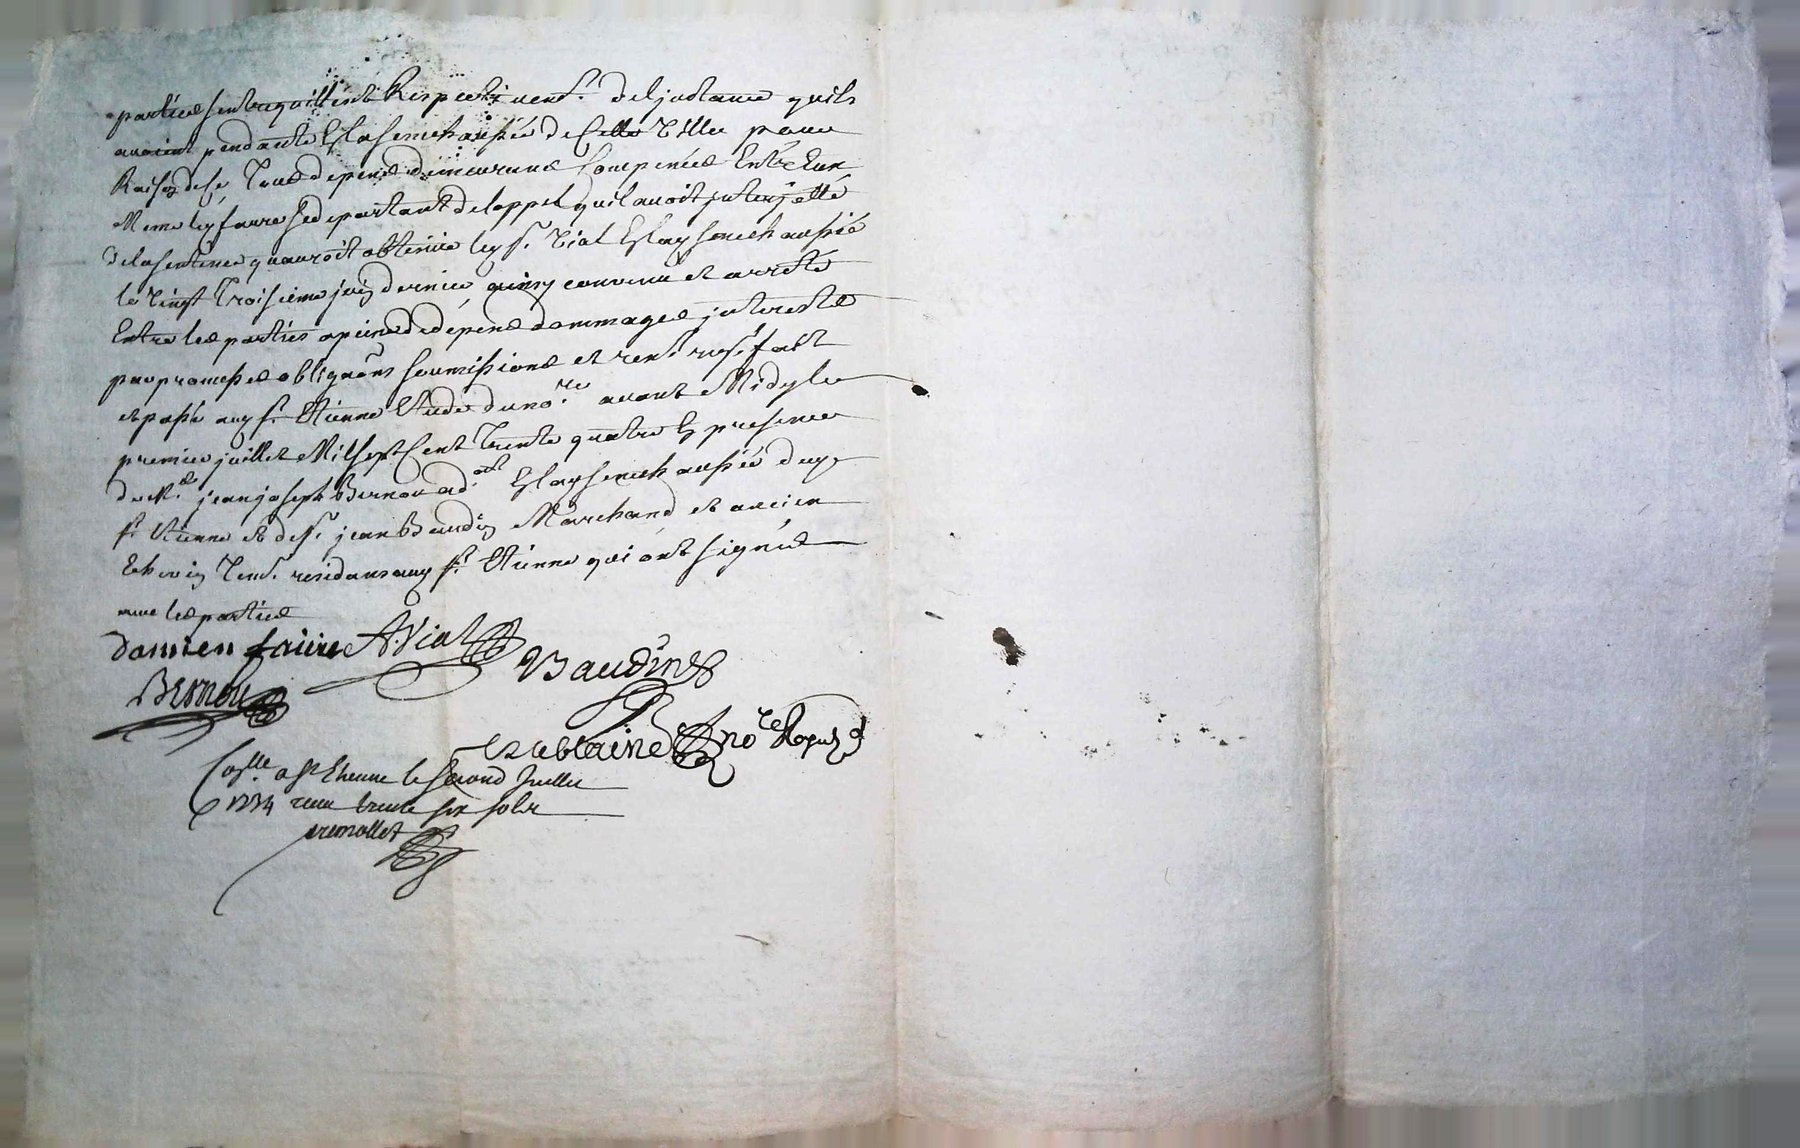 parties sentrequittent Respectivem.t de Linstance quils
avoient pendante En la senechaussée de Cette Ville pour
Raison de ce Tous depens demeurans Compensés Entre Eux
Meme led faure Se departant de lappel quil avoit interjetté
de la sentence quauroit obtenüe led s.r Vial En lad senechaussée
le vingt Troisieme juin dernier ainsy convenu et arreté
Entre les parties a peine de depens dommages interests
par promesses obligaõns soumissions et ren.t cuss.t fait
et passé aud s.t Etienne Etude du no.re avant Midy le
premier juillet Mil sept Cent Trente quatre En presence
de M.e jean joseph Bernou ad.at En lad senechaussée dud
s.t Etienne et de s.r jean Baudin Marchand et ancien
Echevin dem.t residans aud s.t Etienne qui ont signés
avec les parties
damien faure A. Vial
Baudin
Bernou
no.re Royal
Con.lle a s.t Etienne le second Juillet
1734 receu trente six sols